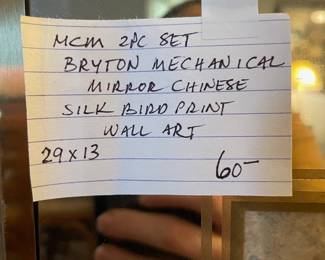 MCM 2PC SET
BRYTON MECHANICAL
MIRROR CHINESE
SILK BIRD PRINT
WALL ART
29 x 13
60-